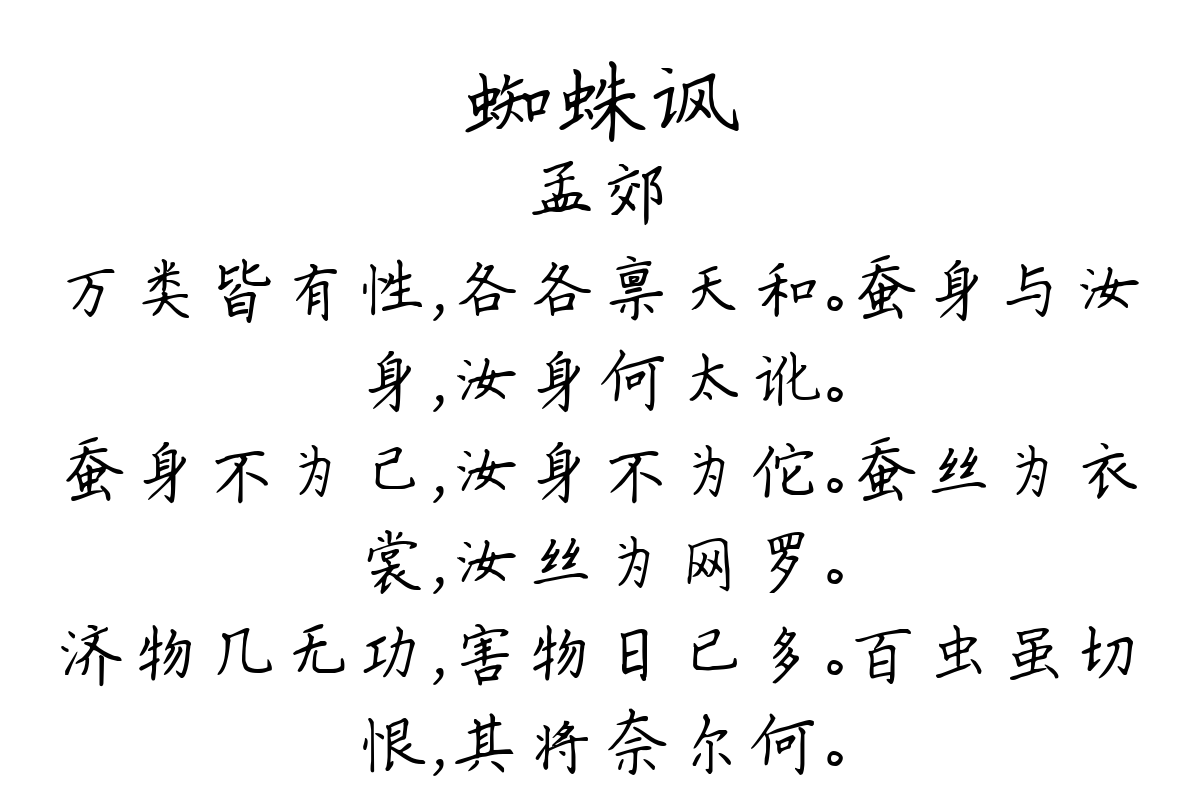 蜘蛛讽
孟郊
万类皆有性,各各禀天和。蚕身与汝
身,汝身何太讹。
蚕身不为己,汝身不为佗。蚕丝为衣
裳,汝丝为网罗。
济物几无功,害物日已多。百虫虽切
恨,其将奈尔何。